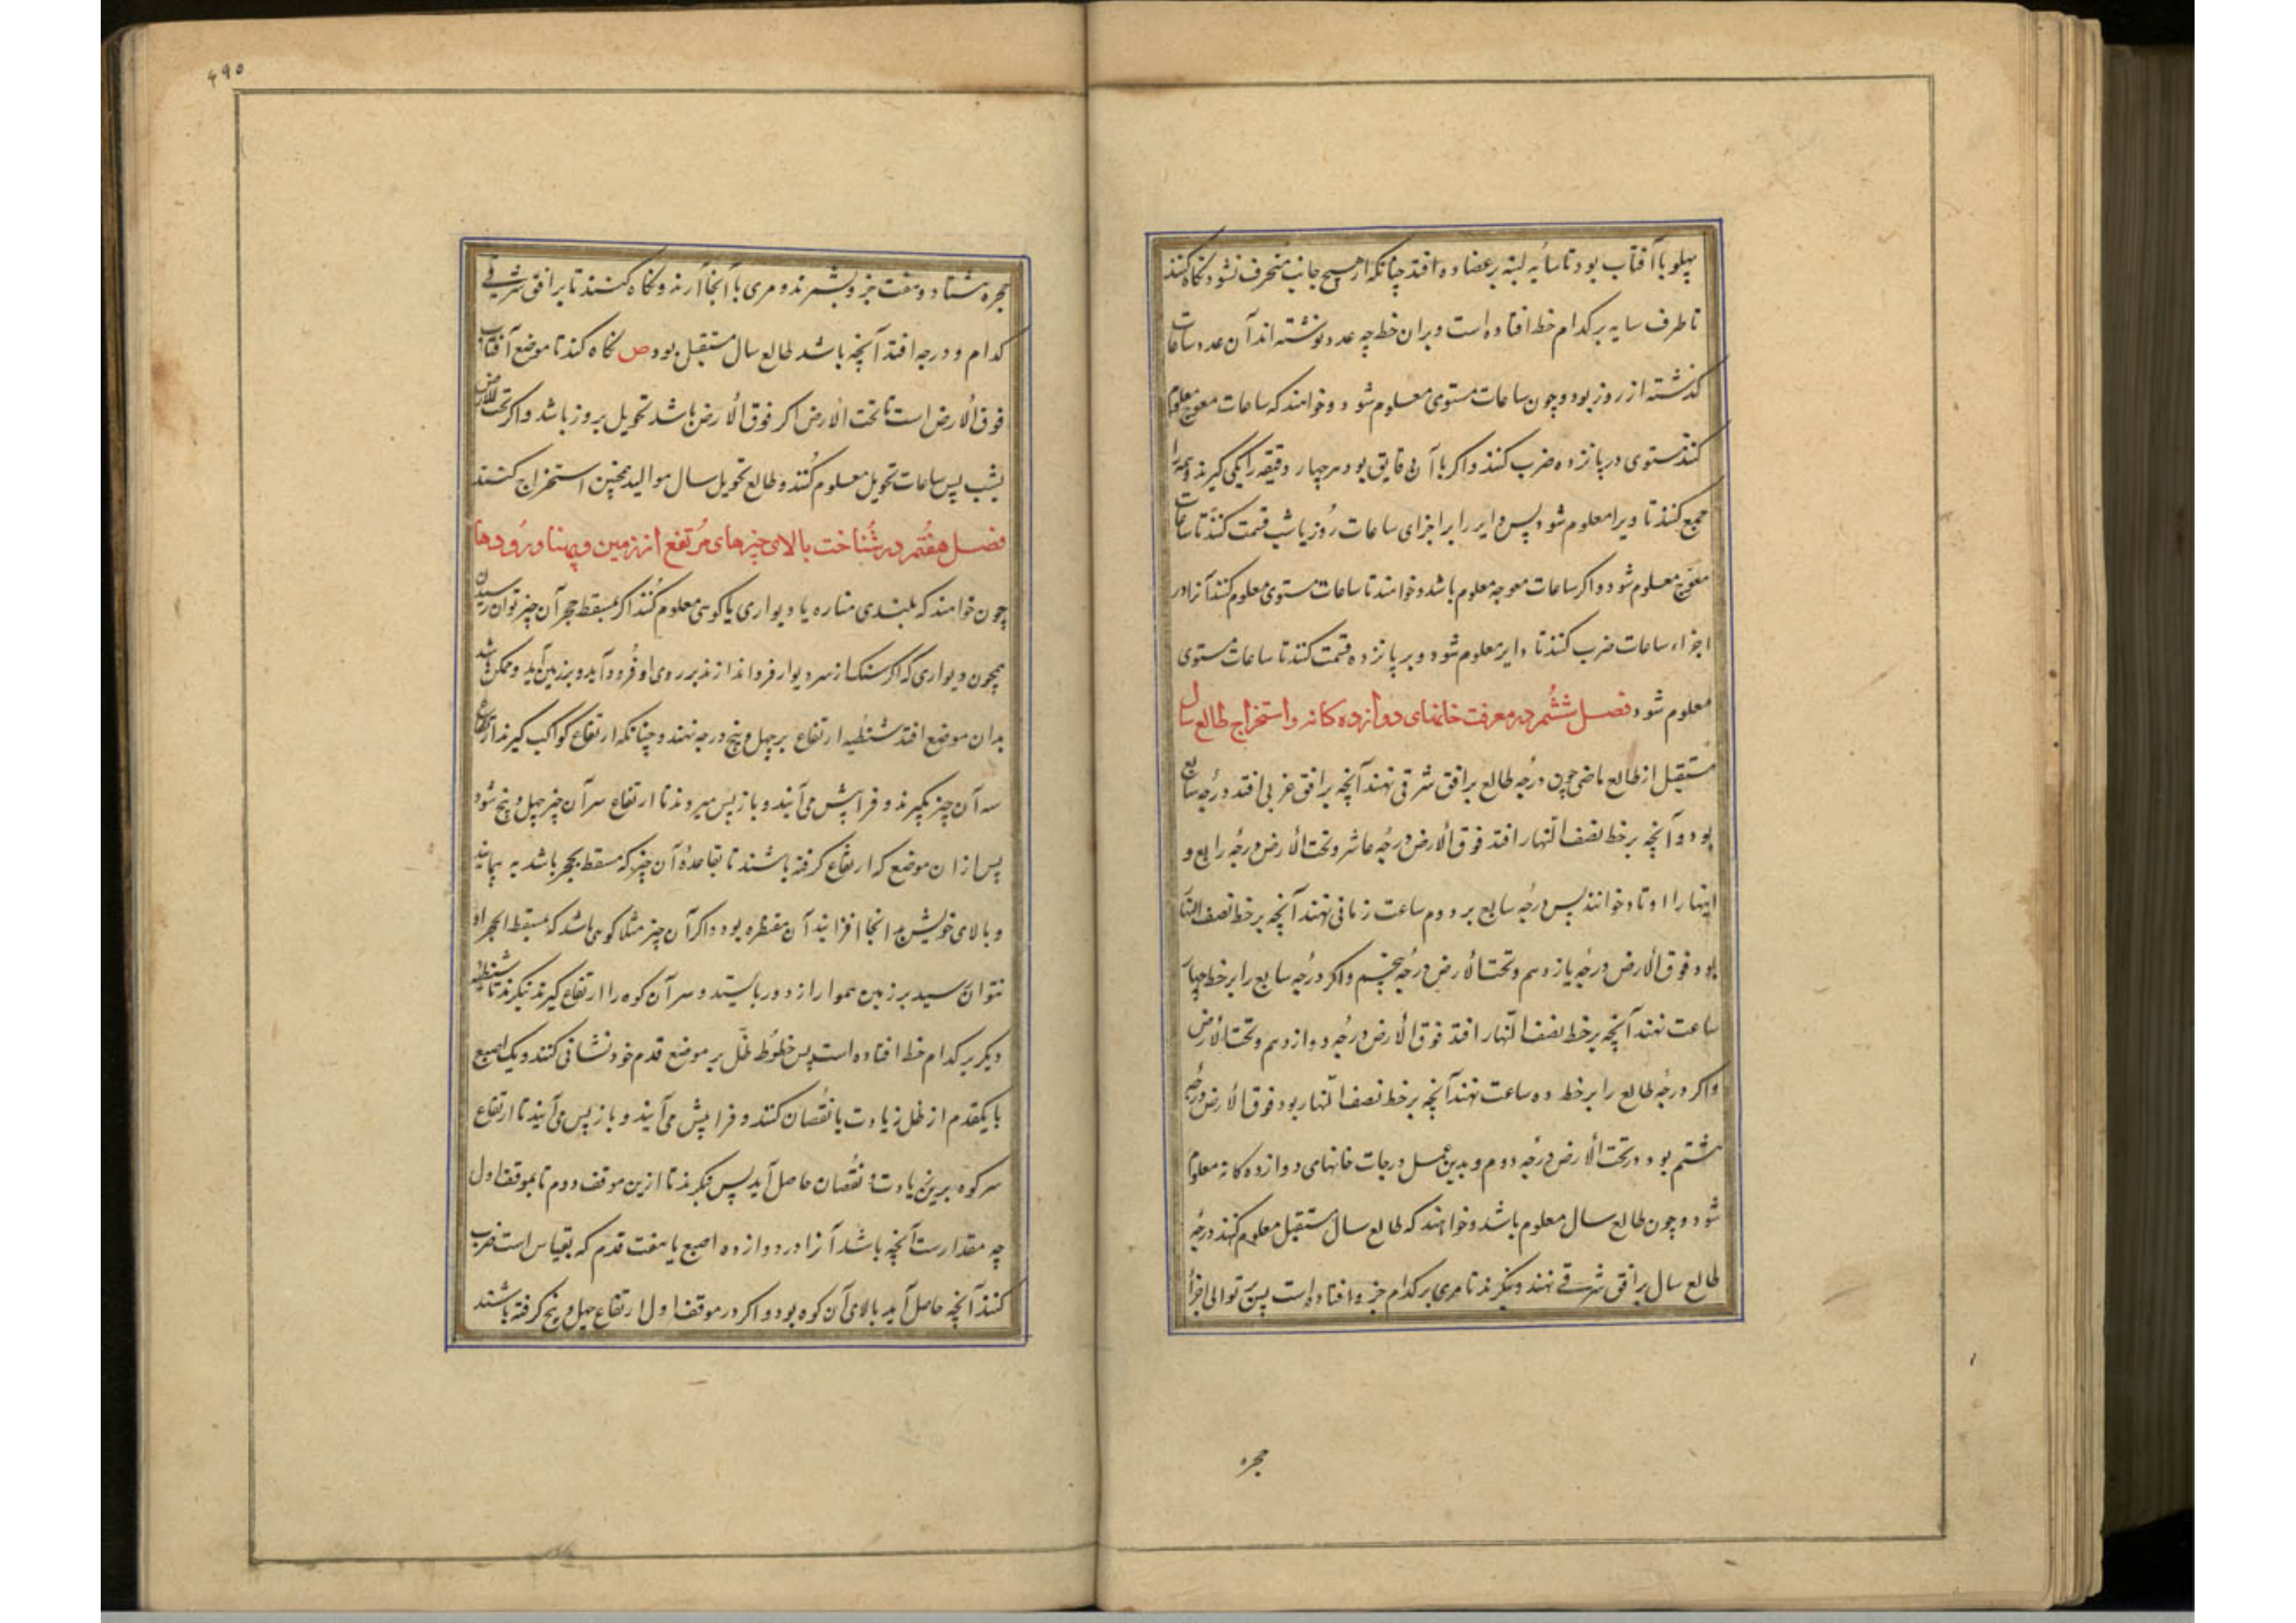 پهلو با آفتاب بود تا سایه لبنه بر عضاده افتد چنانکه از هیچ جانب منحرف نشود نکاه کنند
تا طرف سایه بر کدام خط افتاده است و بران خط چه عدد نوشته اند آن عدد ساعات
کذشته از روز بود و چون ساعات مستوی معلوم شود و خواهند که ساعات معوج معلوم
کنند مستوی در پانزده ضرب کنند و اکر با آن دقایق بود هر چهار دقیقه را یکی کیرند و همه را
جمع کنند تا دیرا معلوم شود پس دایر را بر اجزای ساعات روز یا شب قسمت کنند تا ساعات
معوج معلوم شود و اکر ساعات معوجه معلوم باشد و خواهند تا ساعات مستوی معلوم کنند آنرا در
اجزاء ساعات ضرب کنند تا دایر معلوم شود و بر پانزده قسمت کنند تا ساعات مستوی
معلوم شود فصل ششم در معرفت خانهای دوازده کانه و استخراج طالع سال
مستقبل از طالع ماضی چون درجه طالع بر افق شرقی نهند آنچه بر افق غربی افتد درجه سابع
بود و آنچه بر خط نصف النهار افتد فوق الارض درجه عاشر و تحت الارض درجه رابع و
اینها را اوتاد خوانند پس درجه سابع بر دوم ساعت زمانی نهند آنچه بر خط نصف النهار
بود فوق الارض درجه یازدهم و تحت الارض درجه پنجم و اکر درجه سابع را بر خط چهار
ساعت نهند آنچه بر خط نصف النهار افتد فوق الارض درجه دوازدهم و تحت الارض
واکر درجه طالع را بر خط ده ساعت نهند آنچه بر خط نصف النهار بود فوق الارض درجه
هشتم بود و تحت الارض درجه دوم و بدین عمل درجات خانهای دوازده کانه معلوم
شود و چون طالع سال معلوم باشد و خواهند که طالع سال مستقبل معلوم کنند درجه
طالع سال بر افق شرقی نهند و بنکرند تا مری بر کدام جزو افتاده است پس بر توالی اجزاء
حجره
۴۹۵
حجره هشتاد و هفت جزو بشمرند و مری با آنجا آرند و نکاه کنند تا بر افق شرقی
کدام درجه افتد آنچه باشد طالع سال مستقبل بود ص نکاه کند تا موضع آفتاب
فوق الارض است یا تحت الارض اکر فوق الارض باشد تحویل بروز باشد واکر تحت الارض
بشب پس ساعات تحویل معلوم کنند و طالع تحویل سال موالید همچنین استخراج کنند
فصل هفتم در شناخت بالای چیزهای مرتفع از زمین و پهنا و رودها
چون خواهند که بلندی مناره یا دیواری یا کوهی معلوم کنند اکر بمسقط حجر آن چیز توان رسیدن
همچون دیواری که اکر سنک از سر دیوار فرو اندازند بر روی او فرود آید و بزمین آید و ممکن باشد
بدان موضع افتد شظیه ارتفاع بر چهل و پنج درجه نهند و چنانکه ارتفاع کواکب کیرند ارتفاع
سه آن چیز بکیرند و فرا پیش می آیند و باز پس میروند تا ارتفاع سر آن چیز چهل و پنج شود
پس از ان موضع که ارتفاع کرفته باشند تا بقاعده آن چیز که مسقط بحجر باشد به پیمایند
و بالای خویش بر آنجا افزایند آن مقنطره بود و اکر آن چیز مثلا کوهی باشد که مسقط الحجر او
نتوان رسید بر زمین هموار از دور بایستند و سر آن کوه را ارتفاع کیرند بنکرند تا شظیه
دیکر بر کدام خط افتاده است پس خطوط ظل بر موضع قدم خود نشانی کنند و یک اصبع
یا یکقدم از ظل زیادت یا نقصان کنند و فرا پیش می آیند و باز پس می آیند تا ارتفاع
سر کوه برین زیادت و نقصان حاصل آید پس بنکرند تا ازین موقف دوم تا بموقف اول
چه مقدارست آنچه باشد آنرا در دوازده اصبع یا هفت قدم که بقیاس است ضرب
کنند آنچه حاصل آید بالای آن کوه بود و اکر در موقف اول ارتفاع چهل و پنج کرفته باشند